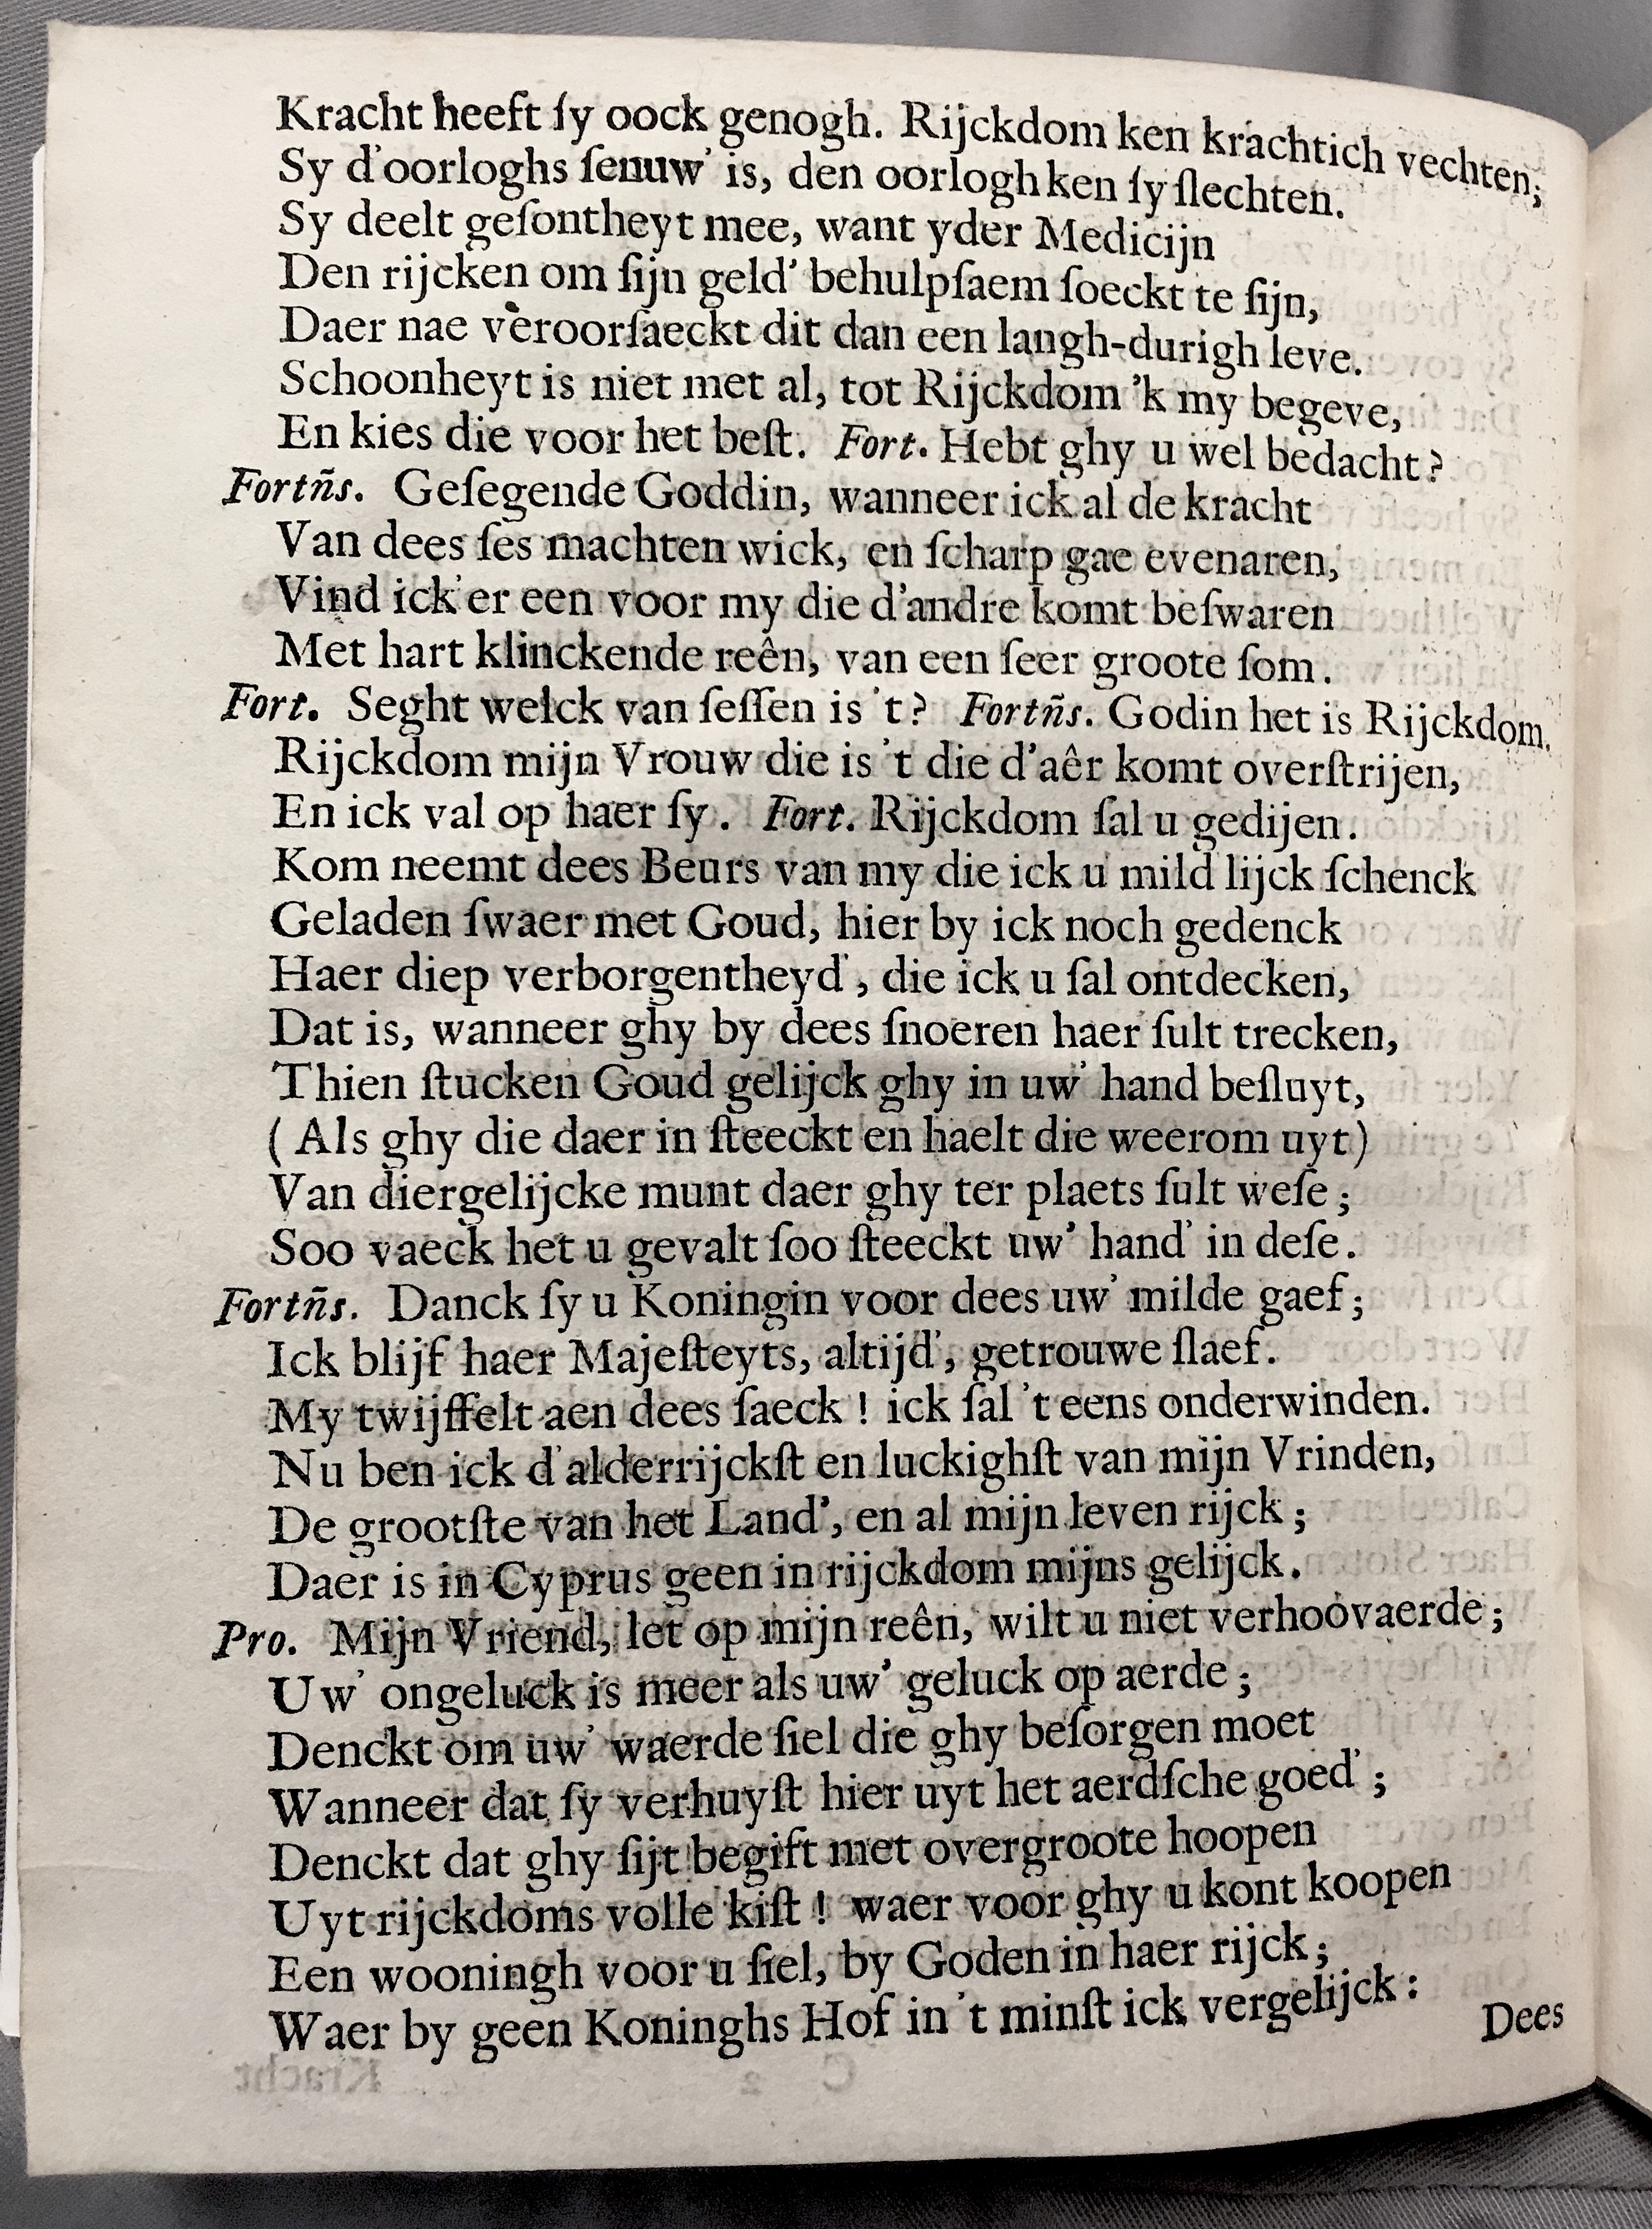 Kracht heeft ſy oock genogh. Rijckdom ken krachtich vechten;
Sy d'oorloghs ſenuw' is, den oorlogh ken ſy ſlechten.
Sy deelt geſontheyt mee, want yder Medicijn
Den rijcken om ſijn geld' behulpſaem ſoeckt te ſijn,
Daer nae veroorſaeckt dit dan een langh-durigh leve.
Schoonheyt is niet met al, tot Rijckdom 'k my begeve,
En kies die voor het beſt. Fort. Hebt ghy u wel bedacht?
Fortñs. Geſegende Goddin, wanneer ick al de kracht
Van dees ſes machten wick, en ſcharp gae evenaren,
Vind ick'er een voor my die d'andre komt beſwaren
Met hart klinckende reên, van een ſeer groote ſom.
Fort. Seght welck van ſeſſen is 't? Fortñs. Godin het is Rijckdom.
Rijckdom mijn Vrouw die is 't die d'aêr komt overſtrijen,
En ick val op haer ſy. Fort. Rijckdom ſal u gedijen.
Kom neemt dees Beurs van my die ick u mild lijck ſchenck
Geladen ſwaer met Goud, hier by ick noch gedenck
Haer diep verborgentheyd', die ick u ſal ontdecken,
Dat is, wanneer ghy by dees ſnoeren haer ſult trecken,
Thien ſtucken Goud gelijck ghy in uw' hand beſluyt,
(Als ghy die daer in ſteeckt en haelt die weerom uyt)
Van diergelijcke munt daer ghy ter plaets ſult weſe;
Soo vaeck het u gevalt ſoo ſteeckt uw' hand' in deſe.
Fortñs. Danck ſy u Koningin voor dees uw' milde gaef;
Ick blijf haer Majeſteyts, altijd', getrouwe ſlaef.
My twijffelt aen dees ſaeck! ick ſal 't eens onderwinden.
Nu ben ick d'alderrijckſt en luckighſt van mijn Vrinden,
De grootſte van het Land', en al mijn leven rijck;
Daer is in Cyprus geen in rijckdom mijns gelijck.
Pro. Mijn Vriend, let op mijn reên, wilt u niet verhoovaerde;
Uw' ongeluck is meer als uw' geluck op aerde;
Denckt om uw' waerde ſiel die ghy beſorgen moet
Wanneer dat ſy verhuyſt hier uyt het aerdſche goed';
Denckt dat ghy ſijt begift met overgroote hoopen
Uyt rijckdoms volle kiſt! waer voor ghy u kont koopen
Een wooningh voor u ſiel, by Goden in haer rijck;
Waer by geen Koninghs Hof in 't minſt ick vergelijck:
Dees